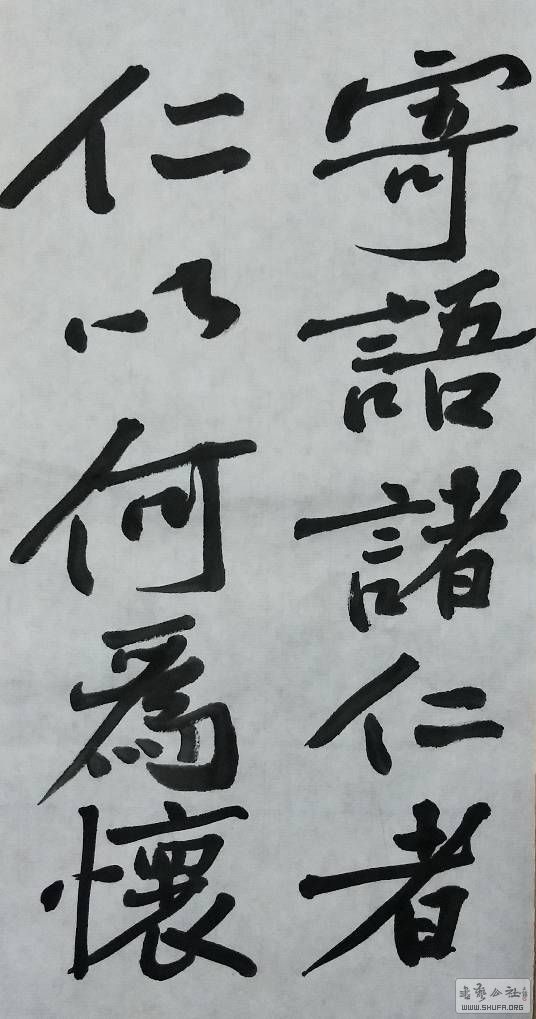 寄語諸仁者
仁以何爲懷
WWW.SHUFA.ORG